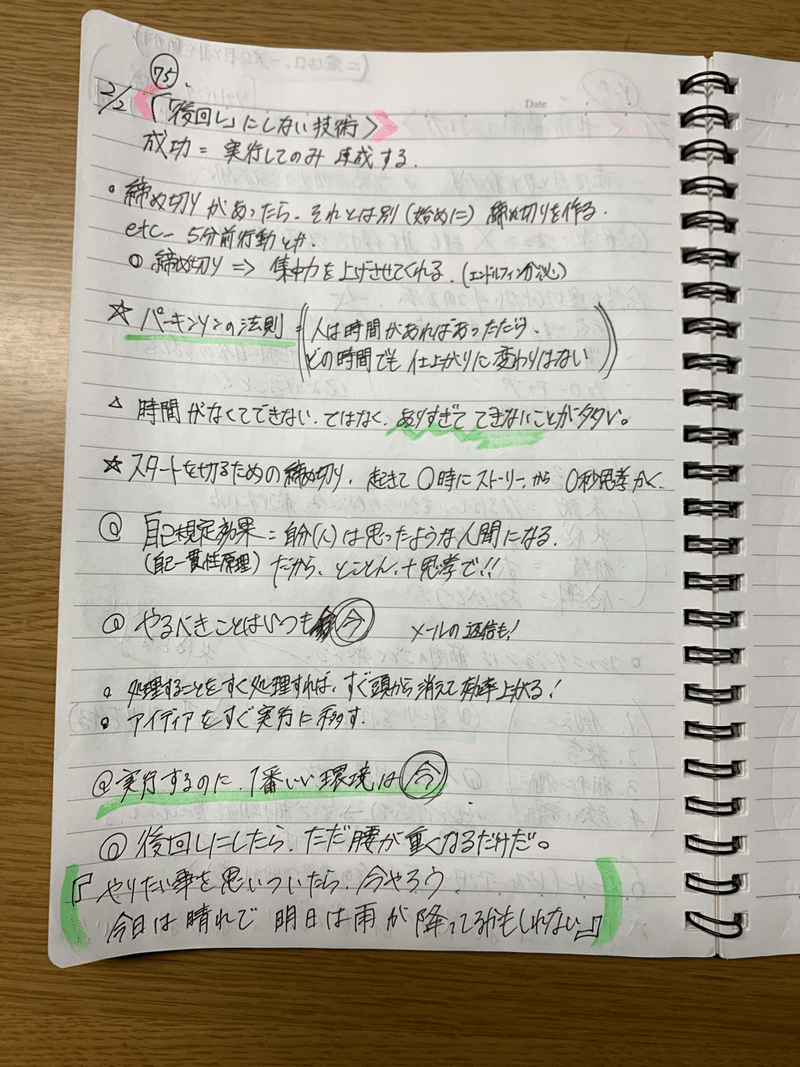 75
2/2 〈「後回し」にしない技術〉
Date
成功 = 実行してのみ達成する.
締め切りがあったら、それとは別(始めに)締め切りを作る.
etc- 5分前行動とか.
締め切り => 集中力を上げさせてくれる.(エンドルフィンが
☆ パーキンソンの法則 = 人は時間があればあっただら、
どの時間でも仕上がりに変わりはない
△ 時間がなくてできない、ではなく、ありすぎてできないことが多い。
☆ スタートを切るための締め切り、起きて〇時にストーリー、から 0秒思考かく.
自己規定効果 = 自分(人)は思ったような人間になる.
(自己一貫性原理) だから、とことん、+思考で!!
やるべきことはいつも 今 メールの返信も!
処理することをすぐ処理すれば、すぐ頭から消えて効率上がる!
アイディアをすぐ実行に移す.
実行するのに、1番いい環境は 今
後回しにしたら、ただ腰が重くなるだけだ。
『やりたい事を思いついたら、今やろう.
今日は晴れで 明日は雨が降ってるかもしれない』